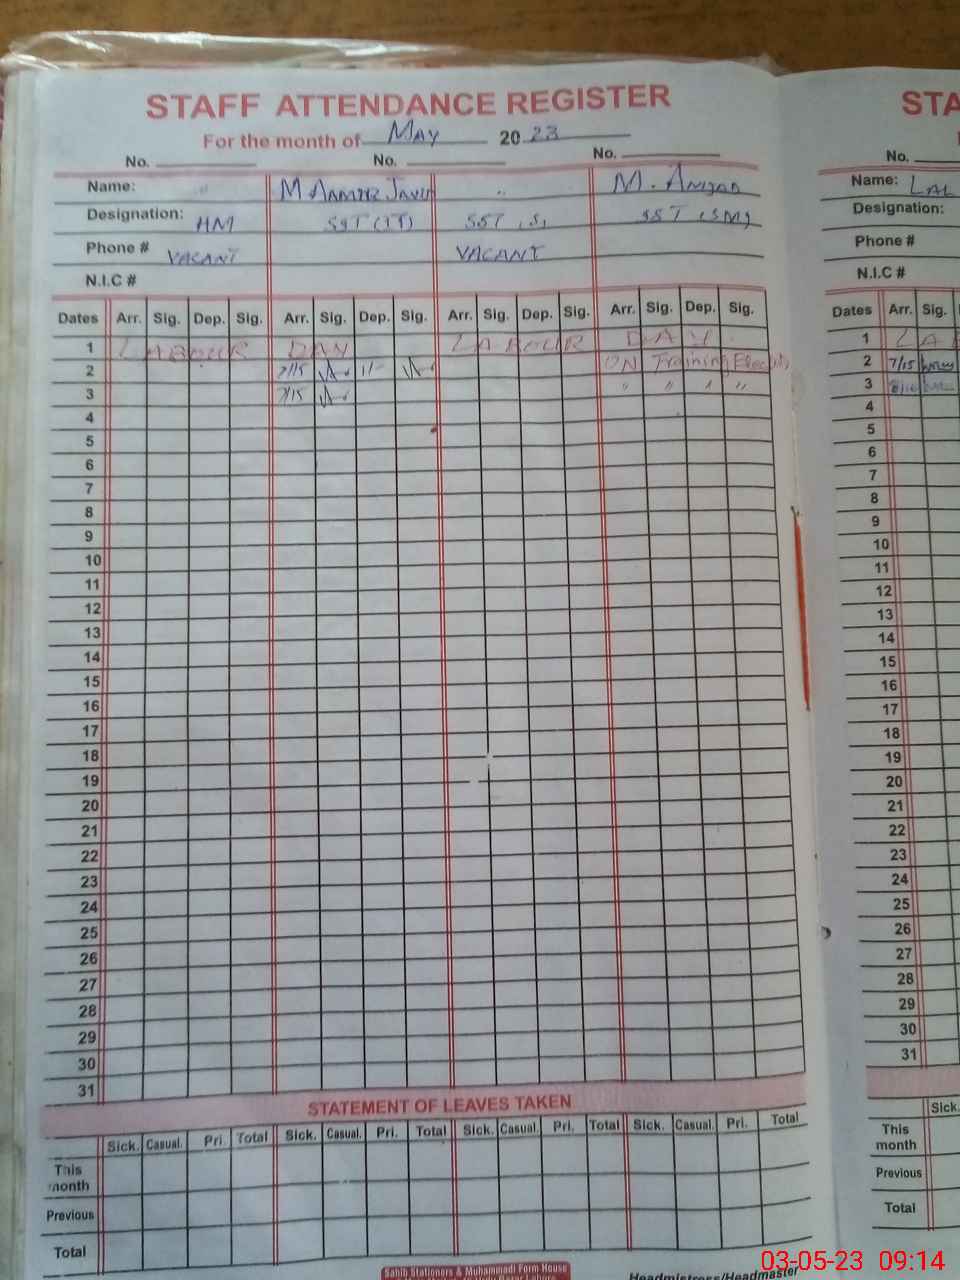 STAFF ATTENDANCE REGISTER
For the month of May 2023
No. No. No.
Name: M Aamir Javid " M. Amjad
Designation: HM SST (IT) SST (S) SST (SM)
Phone # VACANT VACANT
N.I.C #
Dates Arr. Sig. Dep. Sig. Arr. Sig. Dep. Sig. Arr. Sig. Dep. Sig. Arr. Sig. Dep. Sig.
1 LABOUR DAY LABOUR DAY
2 7/15 1/- ON Training
3 7/15 " " " "
4
5
6
7
8
9
10
11
12
13
14
15
16
17
18
19
20
21
22
23
24
25
26
27
28
29
30
31
STATEMENT OF LEAVES TAKEN
Sick. Casual. Pri. Total Sick. Casual. Pri. Total Sick. Casual. Pri. Total Sick. Casual. Pri. Total
This month
Previous
Total
Sahib Stationers & Muhammadi Form House
Headmistress/Headmaster
STA
No.
Name: LAL
Designation:
Phone #
N.I.C #
Dates Arr. Sig.
1 LA
2 7/15
3
4
5
6
7
8
9
10
11
12
13
14
15
16
17
18
19
20
21
22
23
24
25
26
27
28
29
30
31
Sick.
This month
Previous
Total
03-05-23 09:14